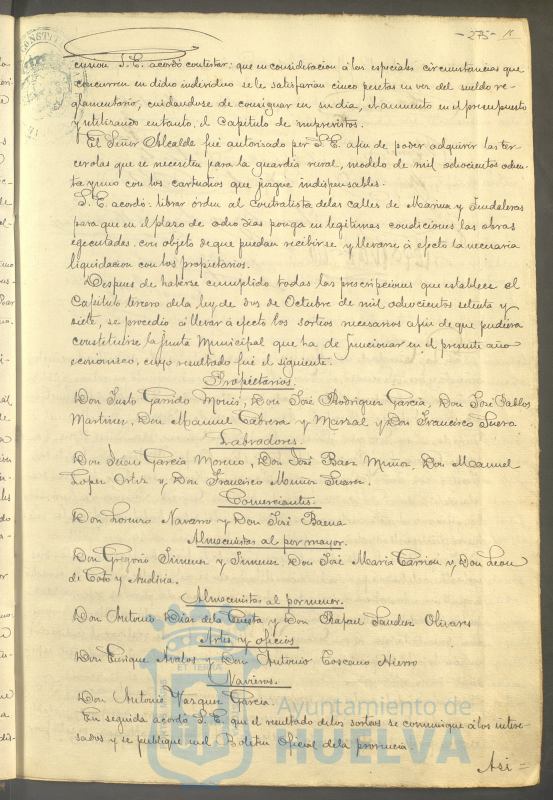 -275-
cusion S. E. acordó contestar: que en consideracion á las especiales circunstancias que
concurren en dicho individuo se le satisfarian cinco pesetas en vez del sueldo re-
glamentario, cuidandose de consignar en su dia, el aumento en el presupuesto
y utilizando entanto, el Capitulo de imprevistos.
El Señor Alcalde fué autorizado por S. E. afin de poder adquirir las ter-
cerolas que se necesiten para la guardia rural, modelo de mil ochocientos ochen-
ta y uno con los cartuchos que juzgue indispensables.
S. E. acordó: librar orden al Contratista de las calles de Marina y
para que en el plazo de ocho dias ponga en legitimas condiciones las obras
egecutadas con objeto de que puedan recibirse y llevarse á efecto la necesaria
liquidacion con los propietarios.
Despues de haberse cumplido todas las prescripciones que establece el
Capitulo tercero de la ley de dos de Octubre de mil ochocientos setenta y
siete, se procedió á llevar á efecto los sorteos necesarios afin de que pudiera
constituirse la Junta Municipal que ha de funcionar en el presente año
económico, cuyo resultado fué el siguiente.
Propietarios.
Don Justo Garrido Mories, Don José Rodriguez Garcia, Don José Pablos
Martinez, Don Manuel Cabrera y Marzal y Don Francisco Suero
Labradores.
Don Juan Garcia Moreno, Don José Baez Muñoz, Don Manuel
Lopez Ortiz y Don Francisco Muñoz Suarez.
Comerciantes.
Don Lorenzo Navarro y Don José Baena
Almacenistas al por mayor.
Don Gregorio Jimenez y Jimenez Don José Maria Carrion y Don Leon
de Coto y
Almacenistas al por menor.
Don Antonio Diaz de la Cuesta y Don Rafael Sanchez Olivares
Artes y oficios
Don Enrique Avalos y Don Antonio Toscano Hierro
Navieros.
Don Antonio Vazquez Garcia.
En seguida acordó S. E. que el resultado de los sorteos se comunique á los intere-
sados y se publique en el Boletin Oficial de la provincia.
Asi =
Ayuntamiento de
HUELVA